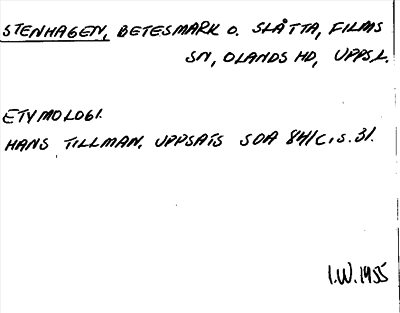 STENHAGEN, BETESMARK O. SLÅTTA, FILMS
SN, OLANDS HD, UPPS.L.
ETYMOLOGI.
HANS TILLMAN. UPPSATS SOA 84/C, S. 31.
I.W. 1955